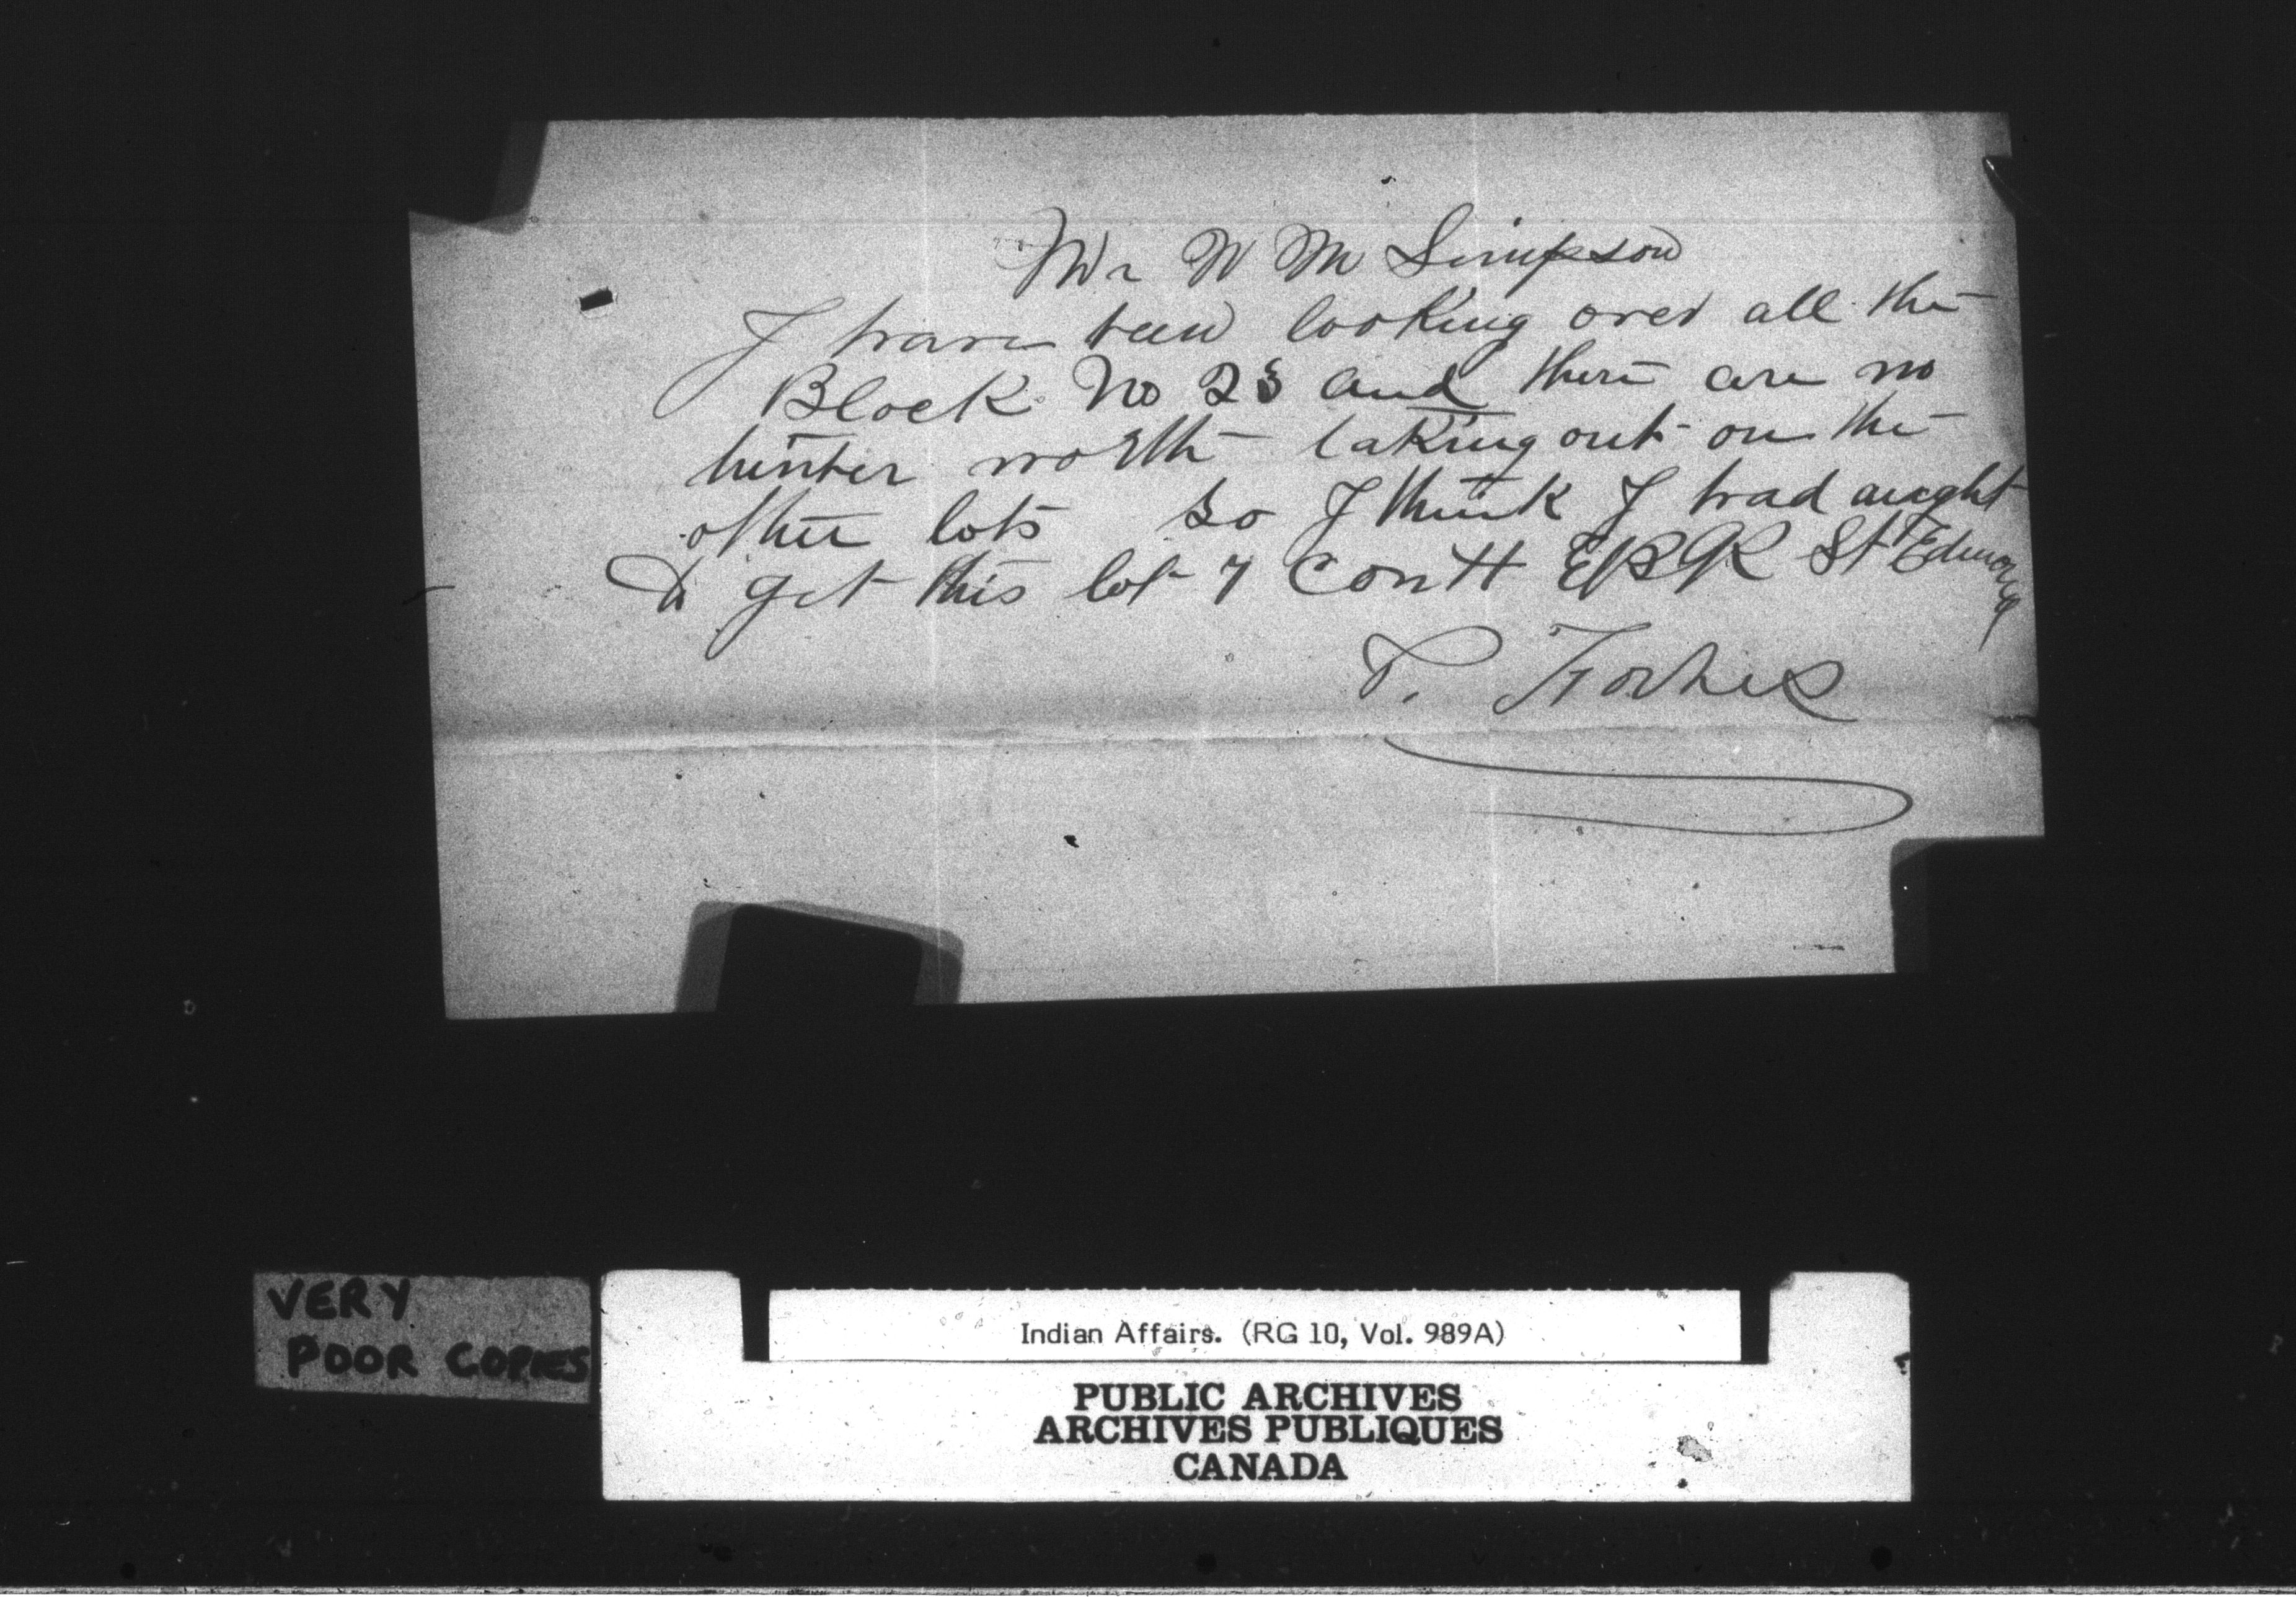 Mr W M Simpson
I have been looking over all the
Block No 23 and there are no
timber worth taking out on the
other lots So I think I had aught
to get this lot 7 Con 4 EBR St Edmond
T. Forbes
VERY
POOR COPIES
Indian Affairs. (RG 10, Vol. 989A)
PUBLIC ARCHIVES
ARCHIVES PUBLIQUES
CANADA